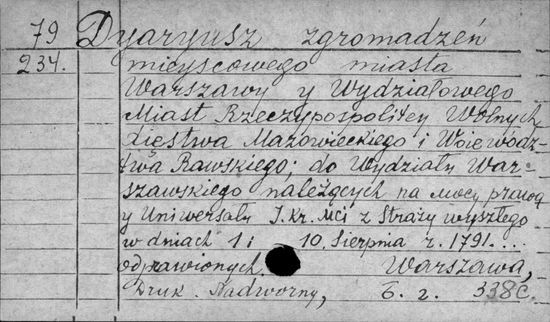 79 Dyaryusz zgromadzeń
234. mieyscowego miasta
Warszawy y Wydziałowego
Miast Rzeczypospolitey Wolnych
Xięstwa Mazowieckiego i Woiewódz-
twa Rawskiego; do Wydziału War-
szawskiego należących na mocy prawa
y Uniwersału J. Kr. Mci z Straży wyszłego
w dniach 1 i 10. Sierpnia r. 1791....
odprawionych. Warszawa,
Druk. Nadworny, b. r. 338 C.